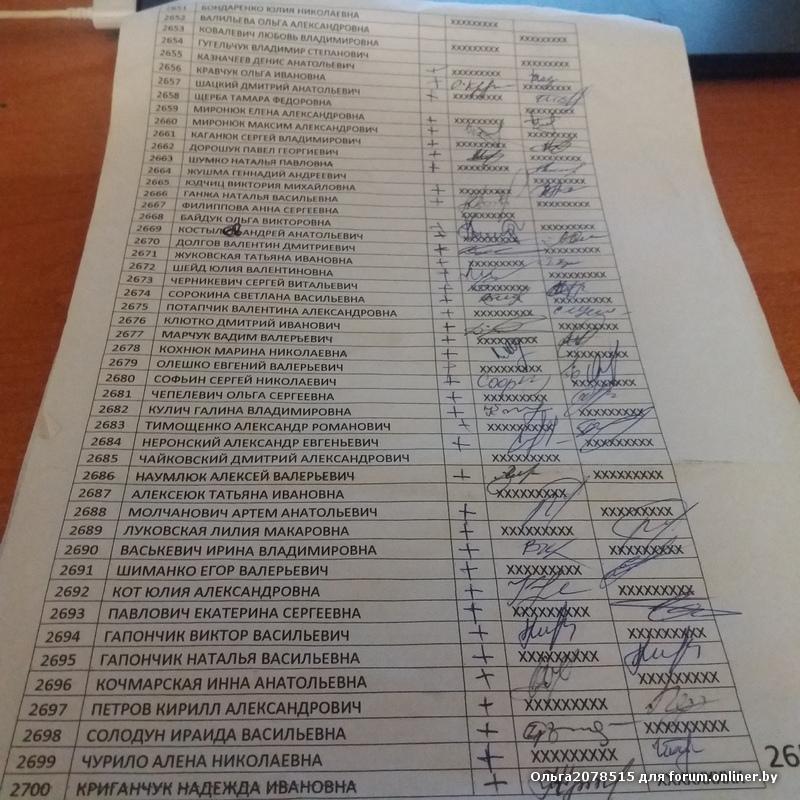 2651 БОНДАРЕНКО ЮЛИЯ НИКОЛАЕВНА
2652 ВАЛИЛЬЕВА ОЛЬГА АЛЕКСАНДРОВНА xxxxxxxxx
2653 КОВАЛЕВИЧ ЛЮБОВЬ ВЛАДИМИРОВНА xxxxxxxxx
2654 ГУГЕЛЬЧУК ВЛАДИМИР СТЕПАНОВИЧ xxxxxxxxx
2655 КАЗНАЧЕЕВ ДЕНИС АНАТОЛЬЕВИЧ xxxxxxxxx
2656 КРАВЧУК ОЛЬГА ИВАНОВНА + xxxxxxxxx
2657 ШАЦКИЙ ДМИТРИЙ АНАТОЛЬЕВИЧ + xxxxxxxxx
2658 ЩЕРБА ТАМАРА ФЕДОРОВНА + xxxxxxxxx
2659 МИРОНЮК ЕЛЕНА АЛЕКСАНДРОВНА xxxxxxxxx
2660 МИРОНЮК МАКСИМ АЛЕКСАНДРОВИЧ + xxxxxxxxx
2661 КАГАНЮК СЕРГЕЙ ВЛАДИМИРОВИЧ + xxxxxxxxx
2662 ДОРОШУК ПАВЕЛ ГЕОРГИЕВИЧ + xxxxxxxxx
2663 ШУМКО НАТАЛЬЯ ПАВЛОВНА + xxxxxxxxx
2664 ЖУШМА ГЕННАДИЙ АНДРЕЕВИЧ + xxxxxxxxx
2665 ЮДЧИЦ ВИКТОРИЯ МИХАЙЛОВНА + xxxxxxxxx
2666 ГАНЖА НАТАЛЬЯ ВАСИЛЬЕВНА + xxxxxxxxx
2667 ФИЛИППОВА АННА СЕРГЕЕВНА xxxxxxxxx
2668 БАЙДУК ОЛЬГА ВИКТОРОВНА + xxxxxxxxx
2669 КОСТЫЛЕВ АНДРЕЙ АНАТОЛЬЕВИЧ + xxxxxxxxx
2670 ДОЛГОВ ВАЛЕНТИН ДМИТРИЕВИЧ + xxxxxxxxx
2671 ЖУКОВСКАЯ ТАТЬЯНА ИВАНОВНА + xxxxxxxxx
2672 ШЕЙД ЮЛИЯ ВАЛЕНТИНОВНА + xxxxxxxxx
2673 ЧЕРНИКЕВИЧ СЕРГЕЙ ВИТАЛЬЕВИЧ + xxxxxxxxx
2674 СОРОКИНА СВЕТЛАНА ВАСИЛЬЕВНА + xxxxxxxxx
2675 ПОТАПЧИК ВАЛЕНТИНА АЛЕКСАНДРОВНА + xxxxxxxxx
2676 КЛЮТКО ДМИТРИЙ ИВАНОВИЧ + xxxxxxxxx
2677 МАРЧУК ВАДИМ ВАЛЕРЬЕВИЧ + xxxxxxxxx
2678 КОХНЮК МАРИНА НИКОЛАЕВНА + xxxxxxxxx
2679 ОЛЕШКО ЕВГЕНИЙ ВАЛЕРЬЕВИЧ + xxxxxxxxx
2680 СОФЬИН СЕРГЕЙ НИКОЛАЕВИЧ + xxxxxxxxx
2681 ЧЕПЕЛЕВИЧ ОЛЬГА СЕРГЕЕВНА + xxxxxxxxx
2682 КУЛИЧ ГАЛИНА ВЛАДИМИРОВНА + xxxxxxxxx
2683 ТИМОЩЕНКО АЛЕКСАНДР РОМАНОВИЧ + xxxxxxxxx
2684 НЕРОНСКИЙ АЛЕКСАНДР ЕВГЕНЬЕВИЧ + xxxxxxxxx
2685 ЧАЙКОВСКИЙ ДМИТРИЙ АЛЕКСАНДРОВИЧ xxxxxxxxx
2686 НАУМЛЮК АЛЕКСЕЙ ВАЛЕРЬЕВИЧ + xxxxxxxxx
2687 АЛЕКСЕЮК ТАТЬЯНА ИВАНОВНА xxxxxxxxx
2688 МОЛЧАНОВИЧ АРТЕМ АНАТОЛЬЕВИЧ + xxxxxxxxx
2689 ЛУКОВСКАЯ ЛИЛИЯ МАКАРОВНА + xxxxxxxxx
2690 ВАСЬКЕВИЧ ИРИНА ВЛАДИМИРОВНА + xxxxxxxxx
2691 ШИМАНКО ЕГОР ВАЛЕРЬЕВИЧ + xxxxxxxxx
2692 КОТ ЮЛИЯ АЛЕКСАНДРОВНА + xxxxxxxxx
2693 ПАВЛОВИЧ ЕКАТЕРИНА СЕРГЕЕВНА + xxxxxxxxx
2694 ГАПОНЧИК ВИКТОР ВАСИЛЬЕВИЧ + xxxxxxxxx
2695 ГАПОНЧИК НАТАЛЬЯ ВАСИЛЬЕВНА + xxxxxxxxx
2696 КОЧМАРСКАЯ ИННА АНАТОЛЬЕВНА + xxxxxxxxx
2697 ПЕТРОВ КИРИЛЛ АЛЕКСАНДРОВИЧ + xxxxxxxxx
2698 СОЛОДУН ИРАИДА ВАСИЛЬЕВНА + xxxxxxxxx
2699 ЧУРИЛО АЛЕНА НИКОЛАЕВНА + xxxxxxxxx
2700 КРИГАНЧУК НАДЕЖДА ИВАНОВНА +
Ольга2078515 для forum.onliner.by